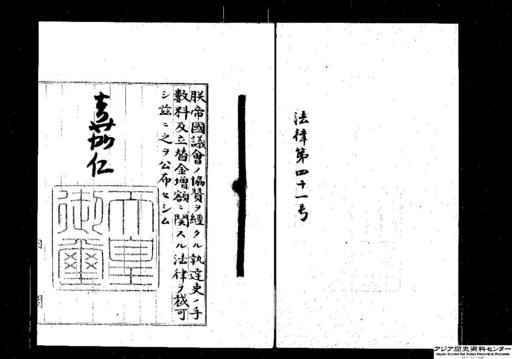 法律第四十一号
朕帝國議會ノ協賛ヲ經タル執達吏ノ手
數料及立替金增額ニ關スル法律ヲ裁可
シ茲ニ之ヲ公布セシム
嘉仁
天皇
御璽
アジア歴史資料センター
Japan Center for Asian Historical Records